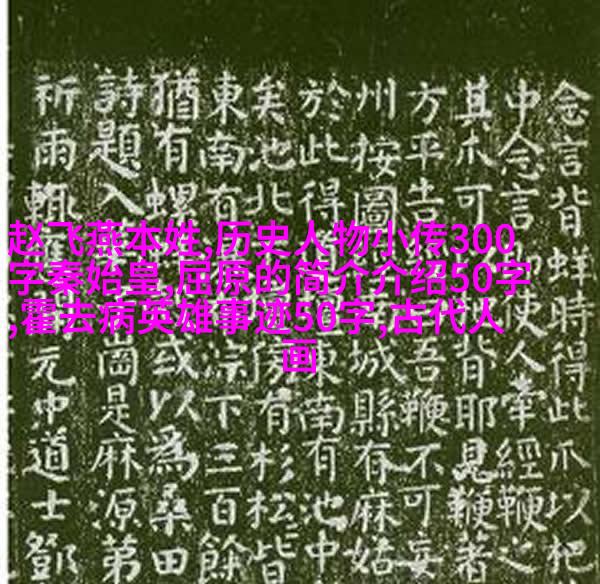 赵飞燕本姓,历史人物小传300
字秦始皇,屈原的简介介绍50字
,霍去病英雄事迹50字,古代人
画
念言背蛘時得此爪以杷
中念言使人牽經鞭之
其爪可背耶見鞭著
方平告吾鞭不可妄
州按圖城縣有麻姑
於此得東南有池中
矣池北傍有杉松皆
東南有淙下三百餘
猶有螺或以為桑田
詩題入崗是麻源第
祈雨輒元中道士鄧